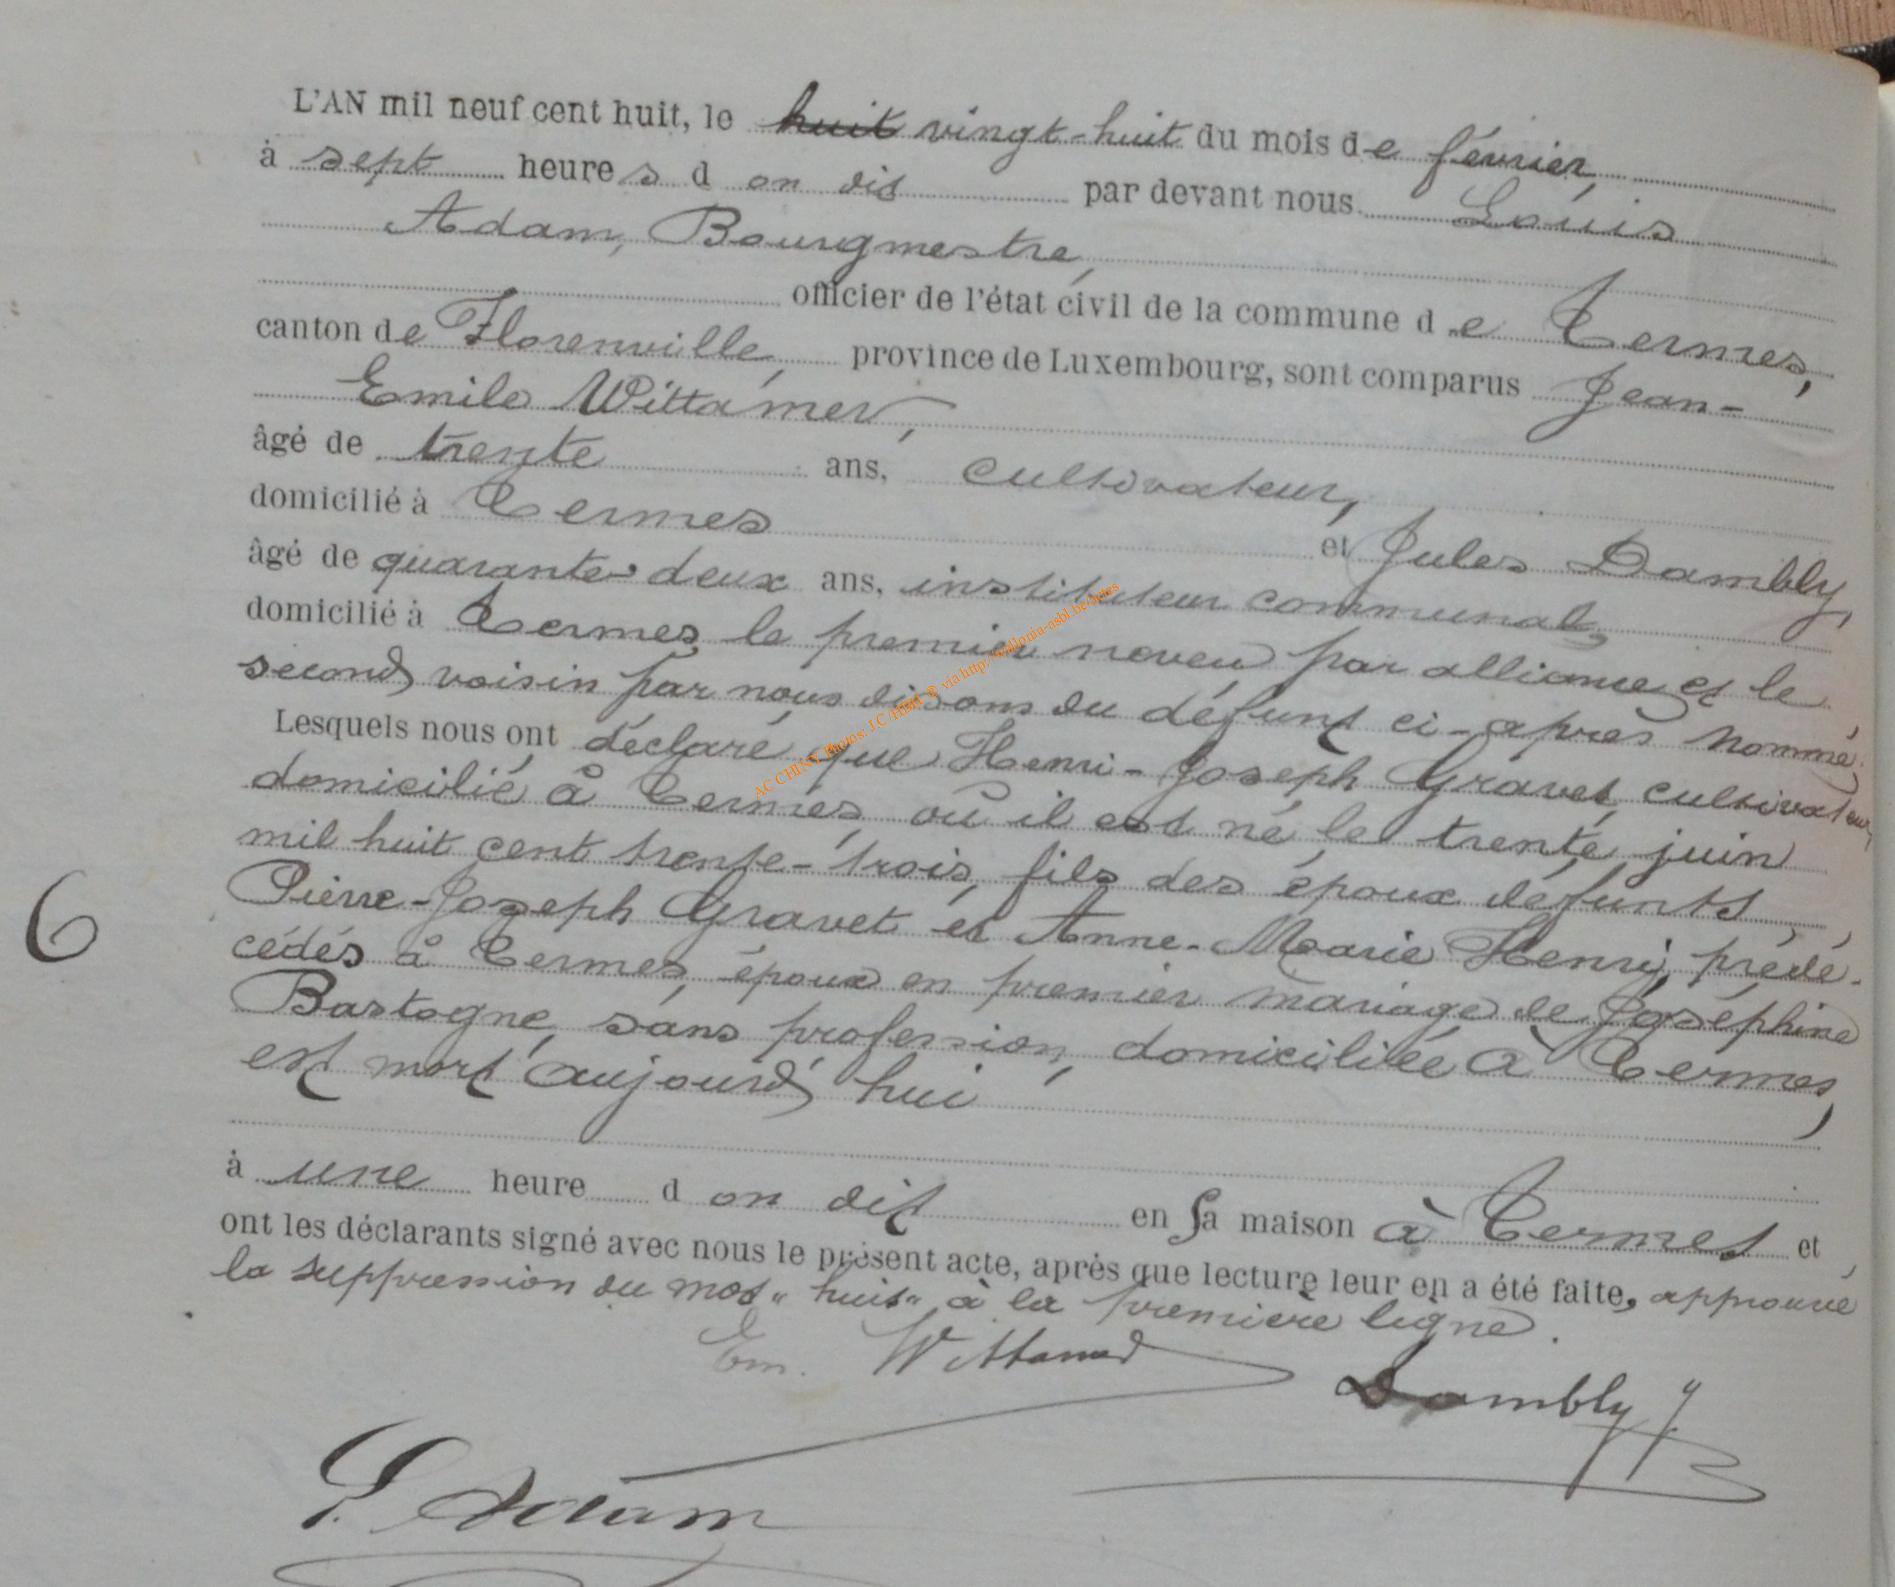 L'AN mil neuf cent huit, le huit vingt-huit du mois de février,
à sept heures d on dit par devant nous Louis
Adam, Bourgmestre,
officier de l'état civil de la commune de Termes,
canton de Florenville, province de Luxembourg, sont comparus Jean-
Emile Wittamer,
âgé de trente ans, cultivateur,
domicilié à Termes et Jules Dambly,
âgé de quarante-deux ans, instituteur communal,
domicilié à Termes, le premier neveu par alliance et le
second voisin par nous disons du défunt ci-après nommé.
Lesquels nous ont déclaré que Henri-Joseph Gravet, cultivateur,
domicilié à Termes, où il est né le trente juin
mil huit cent trente-trois, fils des époux défunts
Pierre-Joseph Gravet et Anne-Marie Henry, prédé-
cédés à Termes, époux en premier mariage de Joséphine
Bastogne, sans profession, domiciliée à Termes,
est mort aujourd'hui
6
à une heure d on dit en sa maison à Termes et
ont les déclarants signé avec nous le présent acte, après que lecture leur en a été faite, approuvé
la suppression du mot "huit" à la première ligne.
Em. Wittamer
Dambly J
L. Adam
AC CHINY Photos: J.C. via http:// -asbl.be/actes